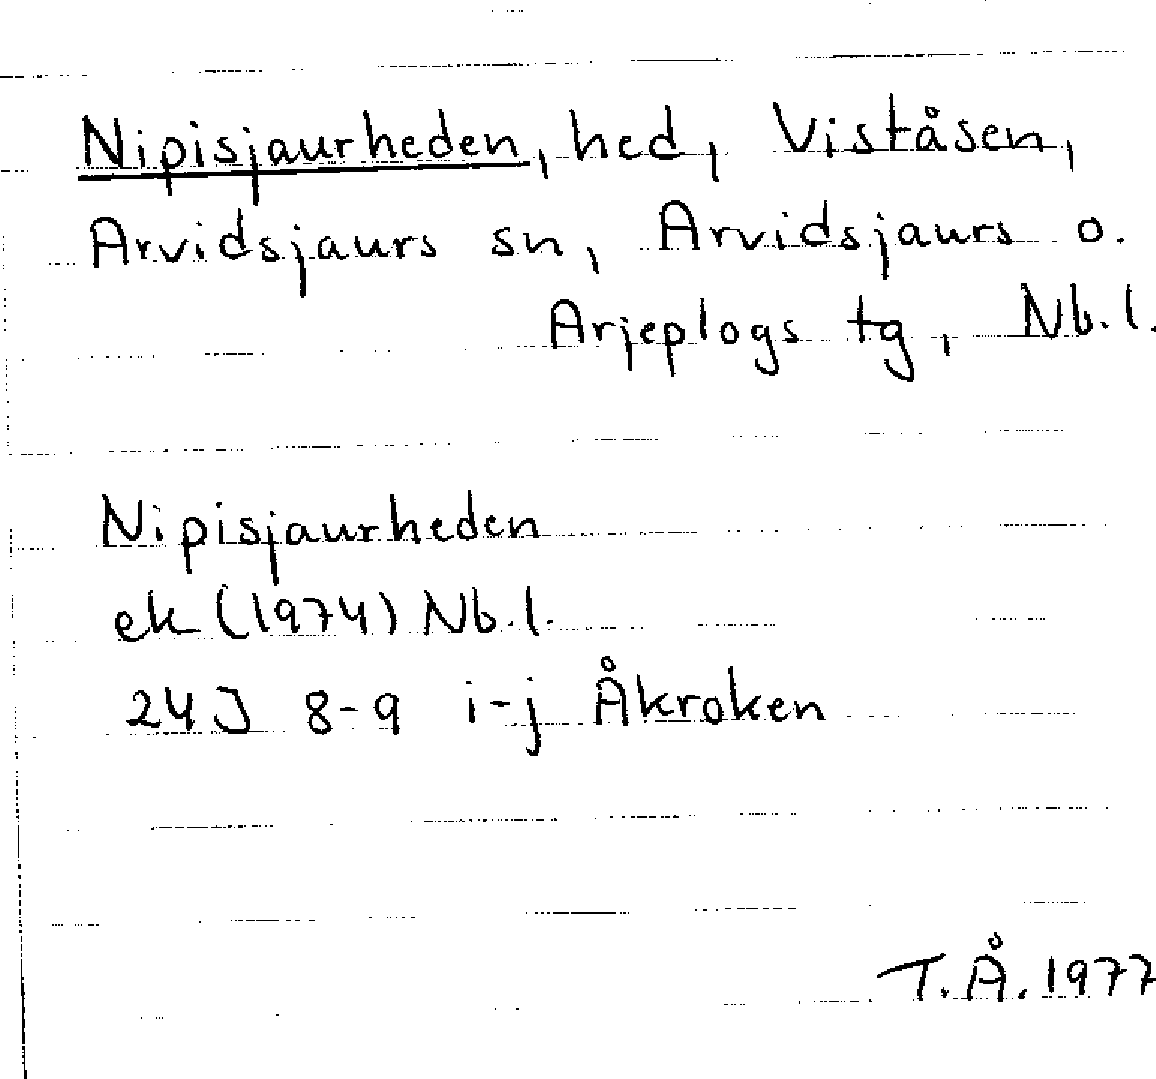 Nipisjaurheden, hed, Viståsen,
Arvidsjaurs sn, Arvidsjaurs o.
Arjeplogs tg, Nb.l.
Nipisjaurheden
ek (1974) Nb.l.
24J 8-9 i-j Åkroken
T.Å. 1977